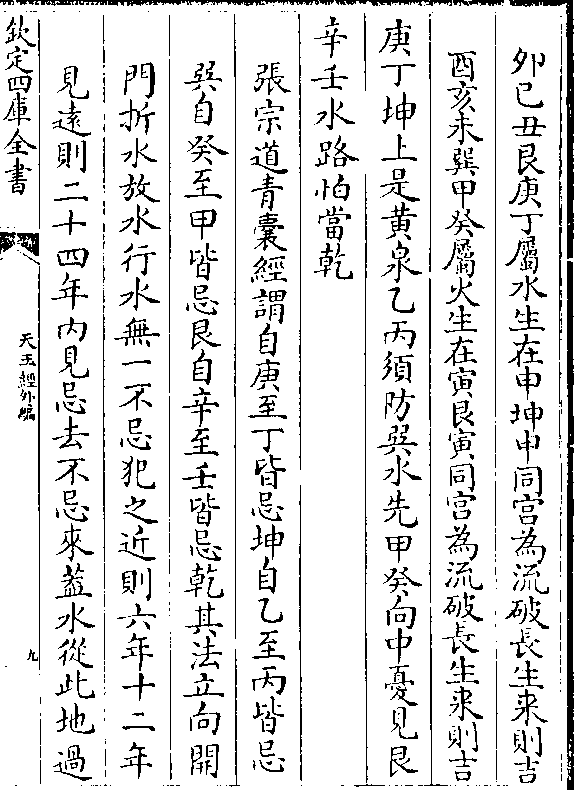 卯巳丑艮庚丁屬水生在申坤申同宫為流破長生来則吉
酉亥未巽甲癸屬火生在寅艮寅同宫為流破長生来則吉
庚丁坤上是黄泉乙丙須防巽水先甲癸向中憂見艮
辛壬水路怕當乾
張宗道青囊經謂自庚至丁皆忌坤自乙至丙皆忌
巽自癸至甲皆忌艮自辛至壬皆忌乾其法立向開
門折水放水行水無一不忌犯之近則六年十二年
見遠則二十四年内見忌去不忌來葢水從此地過
欽定四庫全書
天玉經外編
九